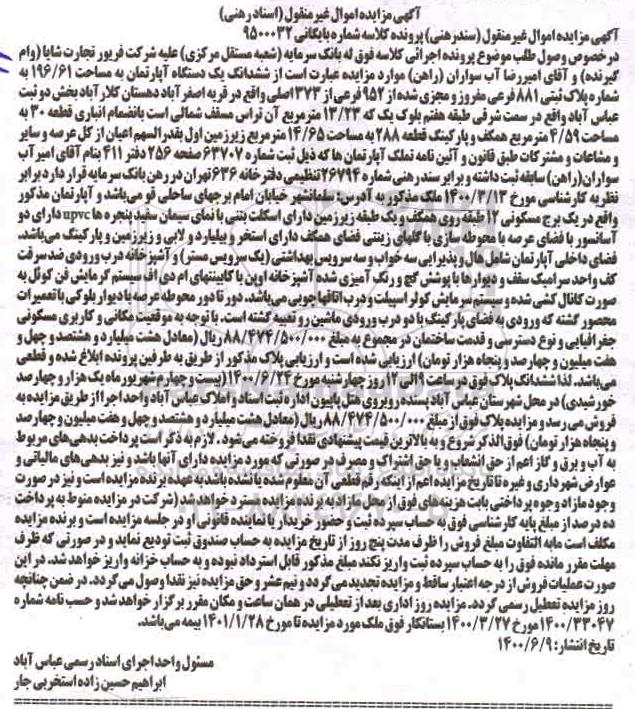 آگهی مزایده اموال غیر منقول (اسناد رهنی)
آگهی مزایده اموال غیر منقول (سند رهنی) پرونده کلاسه شماره بایگانی ۹۵۰۰۰۳۲
در خصوص وصول طلب موضوع پرونده اجرائی کلاسه فوق له بانک سرمایه (شعبه مستقل مرکزی) علیه شرکت فریور تجارت شایا (وام
گیرنده) و آقای امیررضا آب سواران (راهن) موارد مزایده عبارت است از ششدانگ یک دستگاه آپارتمان به مساحت ۱۹۶/۶۱ به
شماره پلاک ثبتی ۸۸۱ فرعی مفروز و مجزی شده از ۹۵۲ فرعی از ۱۳۷۳ اصلی واقع در قریه اصغر آباد دهستان کلارآباد بخش دو ثبت
عباس آباد واقع در سمت شرقی طبقه هفتم بلوک یک که ۱۳/۲۳ متر مربع آن تراس مسقف شمالی است بانضمام انباری قطعه ۳۰ به
مساحت ۴/۵۹ متر مربع همکف و پارکینگ قطعه ۲۸۸ به مساحت ۱۴/۶۵ متر مربع زیرزمین اول بقدرالسهم اعیان از کل عرصه و سایر
و مشاعات و مشترکات طبق قانون و آئین نامه تملک آپارتمان ها که ذیل ثبت شماره ۶۳۷۰۷ صفحه ۲۵۶ دفتر ۴۱۱ بنام آقای امیر آب
سواران (راهن) سابقه ثبت داشته و برابر سند رهنی شماره ۲۶۷۹۴ تنظیمی دفترخانه ۶۳۶ تهران در رهن بانک سرمایه قرار دارد برابر
نظریه کارشناسی مورخ ۱۴۰۰/۳/۱۳ ملک مذکور به آدرس: سلمانشهر خیابان امام برجهای ساحلی قو می‌باشد و آپارتمان مذکور
واقع در یک برج مسکونی ۱۲ طبقه روی همکف و یک طبقه زیرزمین دارای اسکلت بتنی با نمای سیمان سفید پنجره ها upvc دارای دو
آسانسور با فضای عرصه با محوطه سازی با گلهای زینتی فضای همکف دارای استخر و بیلیارد و لابی و زیرزمین و پارکینگ می‌باشد.
فضای داخلی آپارتمان شامل هال و پذیرایی سه خواب و سه سرویس بهداشتی (یک سرویس مستر) و آشپزخانه درب ورودی ضد سرقت
کف واحد سرامیک سقف و دیوارها با پوشش گچ و رنگ آمیزی شده آشپزخانه اوپن با کابینتهای ام دی اف سیستم گرمایش فن کوئل به
صورت کانال کشی شده و سیستم سرمایش کولر اسپیلت و درب اتاقها چوبی می‌باشد. دور تا دور محوطه عرصه با دیوار بلوکی با تعمیرات
محصور گشته که ورودی به فضای پارکینگ با دو درب ورودی ماشین رو تعبیه گشته است. با توجه به موقعیت مکانی و کاربری مسکونی
جغرافیایی و نوع دسترسی و قدمت ساختمان در مجموع به مبلغ ۸۸/۴۷۴/۵۰۰/۰۰۰ ریال (معادل هشت میلیارد و هشتصد و چهل و
هفت میلیون و چهارصد و پنجاه هزار تومان) ارزیابی شده است و ارزیابی پلاک مذکور از طریق به طرفین پرونده ابلاغ شده و قطعی
می‌باشد. لذا ششدانگ پلاک فوق در ساعت ۹ الی ۱۲ روز چهارشنبه مورخ ۱۴۰۰/۶/۲۴ (بیست و چهارم شهریور ماه یک هزار و چهار صد
خورشیدی) در محل شهرستان عباس آباد پسنده روبروی هتل پاپیون اداره ثبت اسناد و املاک عباس آباد واحد اجرا از طریق مزایده به
فروش می رسد و مزایده پلاک فوق از مبلغ ۸۸/۴۷۴/۵۰۰/۰۰۰ ریال (معادل هشت میلیارد و هشتصد و چهل و هفت میلیون و چهارصد
و پنجاه هزار تومان) فوق الذکر شروع و به بالاترین قیمت پیشنهادی نقدا فروخته می‌شود. لازم به ذکر است پرداخت بدهی‌های مربوط
به آب و برق و گاز اعم از حق انشعاب و یا حق اشتراک و مصرف در صورتی که مورد مزایده دارای آنها باشد و نیز بدهی‌های مالیاتی و
عوارض شهرداری و غیره تا تاریخ مزایده اعم از اینکه رقم قطعی آن معلوم شده یا نشده باشد به عهده برنده مزایده است و نیز در صورت
وجود مازاد وجوه پرداختی بابت هزینه‌های فوق از محل مازاد به برنده مزایده مسترد خواهد شد (شرکت در مزایده منوط به پرداخت
ده درصد از مبلغ پایه کارشناسی فوق به حساب سپرده ثبت و حضور خریدار یا نماینده قانونی او در جلسه مزایده است و برنده مزایده
مکلف است مابه التفاوت مبلغ فروش را ظرف مدت پنج روز از تاریخ مزایده به حساب صندوق ثبت تودیع نماید و در صورتی که ظرف
مهلت مقرر مانده فوق را به حساب سپرده ثبت واریز نکند مبلغ مذکور قابل استرداد نبوده و به حساب خزانه واریز خواهد شد. در این
صورت عملیات فروش از درجه اعتبار ساقط و مزایده تجدید می گردد و نیم عشر و حق مزایده نیز نقدا وصول می گردد. در ضمن چنانچه
روز مزایده تعطیل رسمی گردد. مزایده روز اداری بعد از تعطیلی در همان ساعت و مکان مقرر برگزار خواهد شد و حسب نامه شماره
۱۴۰۰/۳۳۰۴۷ مورخ ۱۴۰۰/۳/۲۷ بستانکار فوق ملک مورد مزایده تا مورخ ۱۴۰۱/۱/۲۸ بیمه می‌باشد.
تاریخ انتشار: ۱۴۰۰/۶/۹
مسئول واحد اجرای اسناد رسمی عباس آباد
ابراهیم حسین زاده استخربی جار